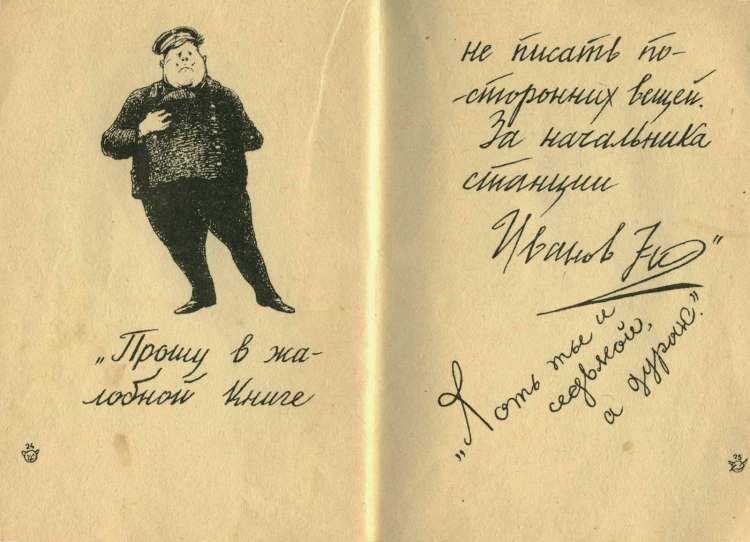 „Прошу в жа-
лобной книге
24
не писать по-
-сторонних вещей.
За начальника
станции
Иванов 7й"
„Хоть ты и
седьмой,
а дурак".
25